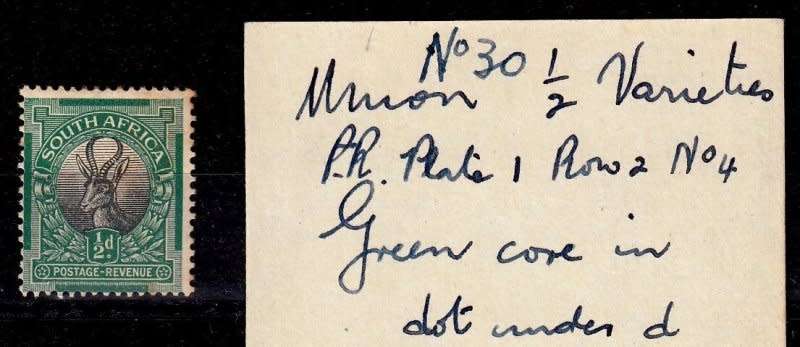 SOUTH AFRICA
½d.
POSTAGE-REVENUE
No 30
Union ½ Varieties
P.R. Plate 1 Row 2 No 4
Green core in
dot under d